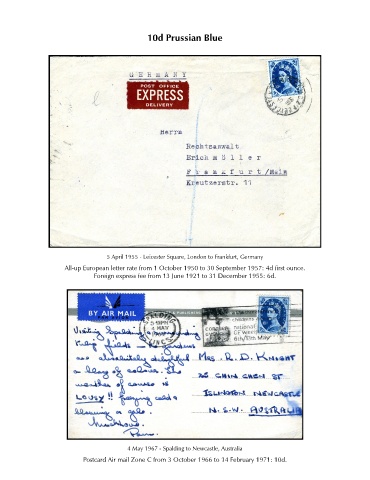 10d Prussian Blue
GERMANY
POST OFFICE
EXPRESS
DELIVERY
Herrn
Rechtsanwalt
Erich Müller
Frankfurt/Main
Kreutzerstr. 11
5 April 1955 - Leicester Square, London to Frankfurt, Germany
All-up European letter rate from 1 October 1950 to 30 September 1957: 4d first ounce.
Foreign express fee from 13 June 1921 to 31 December 1955: 6d.
BY AIR MAIL
SPALDING
4 MAY
LINCS
Visiting Spalding
Tulip fields gardens
are absolutely delightful
a blaze of colour. The
weather of course is
LOUSY!! freezing cold &
blowing a gale.
MRS. R. D. KNIGHT
ISLINGTON NEWCASTLE
N.S.W. AUSTRALIA
4 May 1967 - Spalding to Newcastle, Australia
Postcard Air mail Zone C from 3 October 1966 to 14 February 1971: 10d.